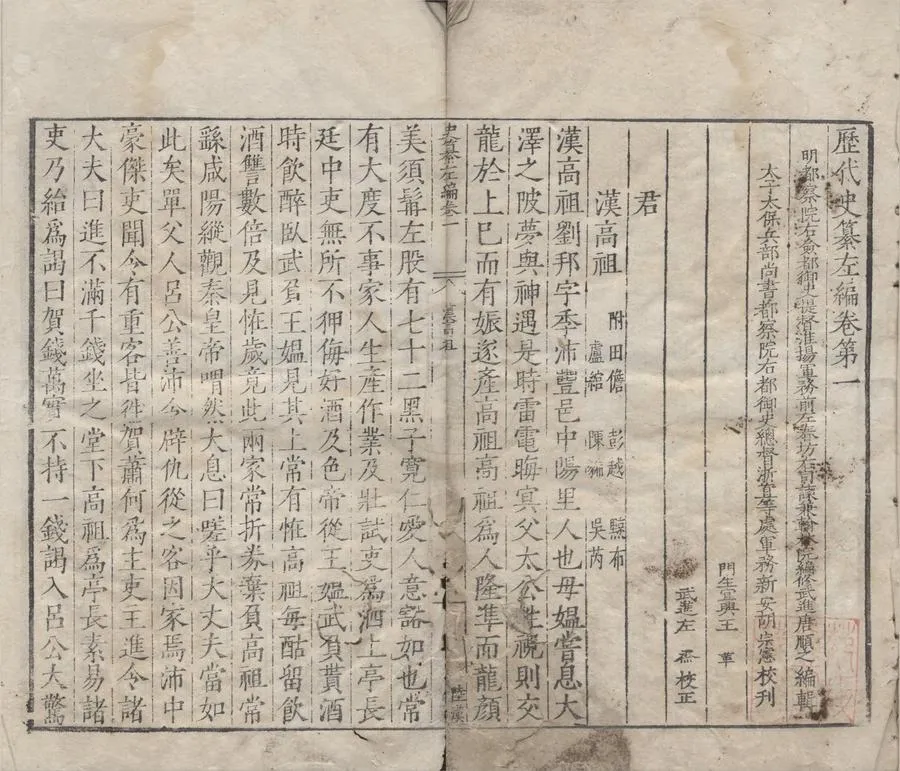 歷代史纂左編卷第一
明都察院右僉都御史提督淮揚軍務前左春坊右司諫兼翰林院編修武進唐順之編輯
太子太保兵部尚書都察院右都御史總督浙直等處軍務新安胡宗憲校刊
門生宜興王革
武進左烝校正
君
漢高祖 附田儋 彭越 黥布
盧綰 陳豨 吳芮
漢高祖劉邦字季沛豐邑中陽里人也母媼嘗息大
澤之陂夢與神遇是時雷電晦冥父太公往視則交
龍於上巳而有娠遂產高祖高祖為人隆準而龍顔
史纂左編卷一 漢高祖
美須髯左股有七十二黑子寬仁愛人意豁如也常
有大度不事家人生產作業及壯試吏為泗上亭長
廷中吏無所不狎侮好酒及色帝從王媼武負貰酒
時飲醉臥武負王媼見其上常有怪高祖每酤留飲
酒讐數倍及見怪歲竟此兩家常折券棄負高祖常
繇咸陽縱觀秦皇帝喟然大息曰嗟乎大丈夫當如
此矣單父人呂公善沛令辟仇從之客因家焉沛中
豪傑吏聞令有重客皆往賀蕭何為主吏主進令諸
大夫曰進不滿千錢坐之堂下高祖為亭長素易諸
吏乃紿為謁曰賀錢萬實不持一錢謁入呂公大驚